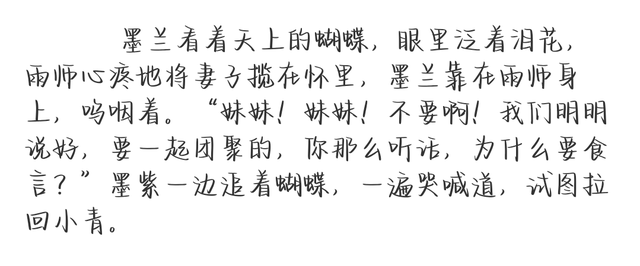 墨兰看着天上的蝴蝶，眼里泛着泪花，
雨师心疼地将妻子揽在怀里，墨兰靠在雨师身
上，呜咽着。“妹妹！妹妹！不要啊！我们明明
说好，要一起团聚的，你那么听话，为什么要食
言？”墨紫一边追着蝴蝶，一遍哭喊道，试图拉
回小青。